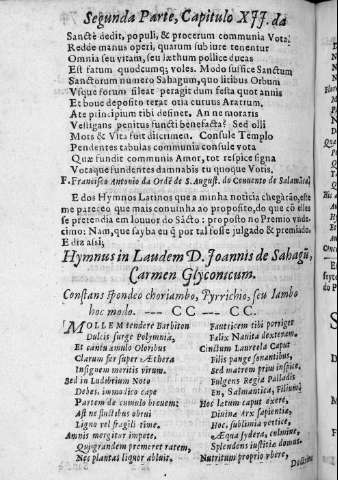 Segunda Parte, Capitulo XII. da
Sanctè dedit, populi, & procerum communia Vota.
Redde manus operi, quarum sub iure tenentur
Omnia seu vitam, seu læthum pollice ducas
Est fatum quodcumq; voles. Modo suffice Sanctum
Sanctorum numero Sahagum, quo litibus Orbum
Vsque forum sileat peragit dum festa quot annis
Et boue deposito terat otia curuus Aratrum.
Ate principium tibi desinet. An ne moraris
Vestigans penitus functi benefacta? Sed olli
Mors & Vita fuit discrimen. Consule Templo
Pendentes tabulas communia consule vota
Quæ fundit communis Amor, tot respice signa
Votaque fundentes damnabis tu quoque Votis.
F. Francisco Antonio da Ordē de S. August. do Conuento de Salamāca,
E dos Hymnos Latinos que a minha noticia chegarão, este
me pareceo que mais conuinha ao proposito, do que cō elles
se pretendia em louuor do Sācto: proposto no Premio vnde-
cimo: Nam, que sayba eu q̄ por tal fosse julgado & premiado.
E diz assi,
Hymnus in Laudem D. Joannis de Sahagū,
Carmen Glyconicum.
Constans spondeo choriambo, Pyrrichio, seu Iambo
hoc modo. --- CC --- CC.
MOLLEM tendere Barbiton
Dulcis surge Polymnia,
Et cantu æmulo Oloribus
Clarum fer super Æthera
Insignem meritis virum.
Sed in Ludibrium Noto
Debet, immolico cape
Partem de cumulo breuem;
Ast ne fluctibus obrui
Ligno vel fragili time.
Amnis mergitur impete,
Quigrandem premeret ratem,
Nec plantas lignor abluit,
Fauticem tibi porriget
Falix Nanita dexteram.
Cinctum Laureola Caput
Filis pange sonantibus,
Sed matrem prius inspice,
Fulgens Regia Palladis
En, Salmantica, Filium,
Hoc letum caput exere,
Diuina Arx sapientia,
Hoc, sublimia vertice,
Æqua sydera, culmine,
Splendens iustitiæ domus.
Nutritum proprio vbere,